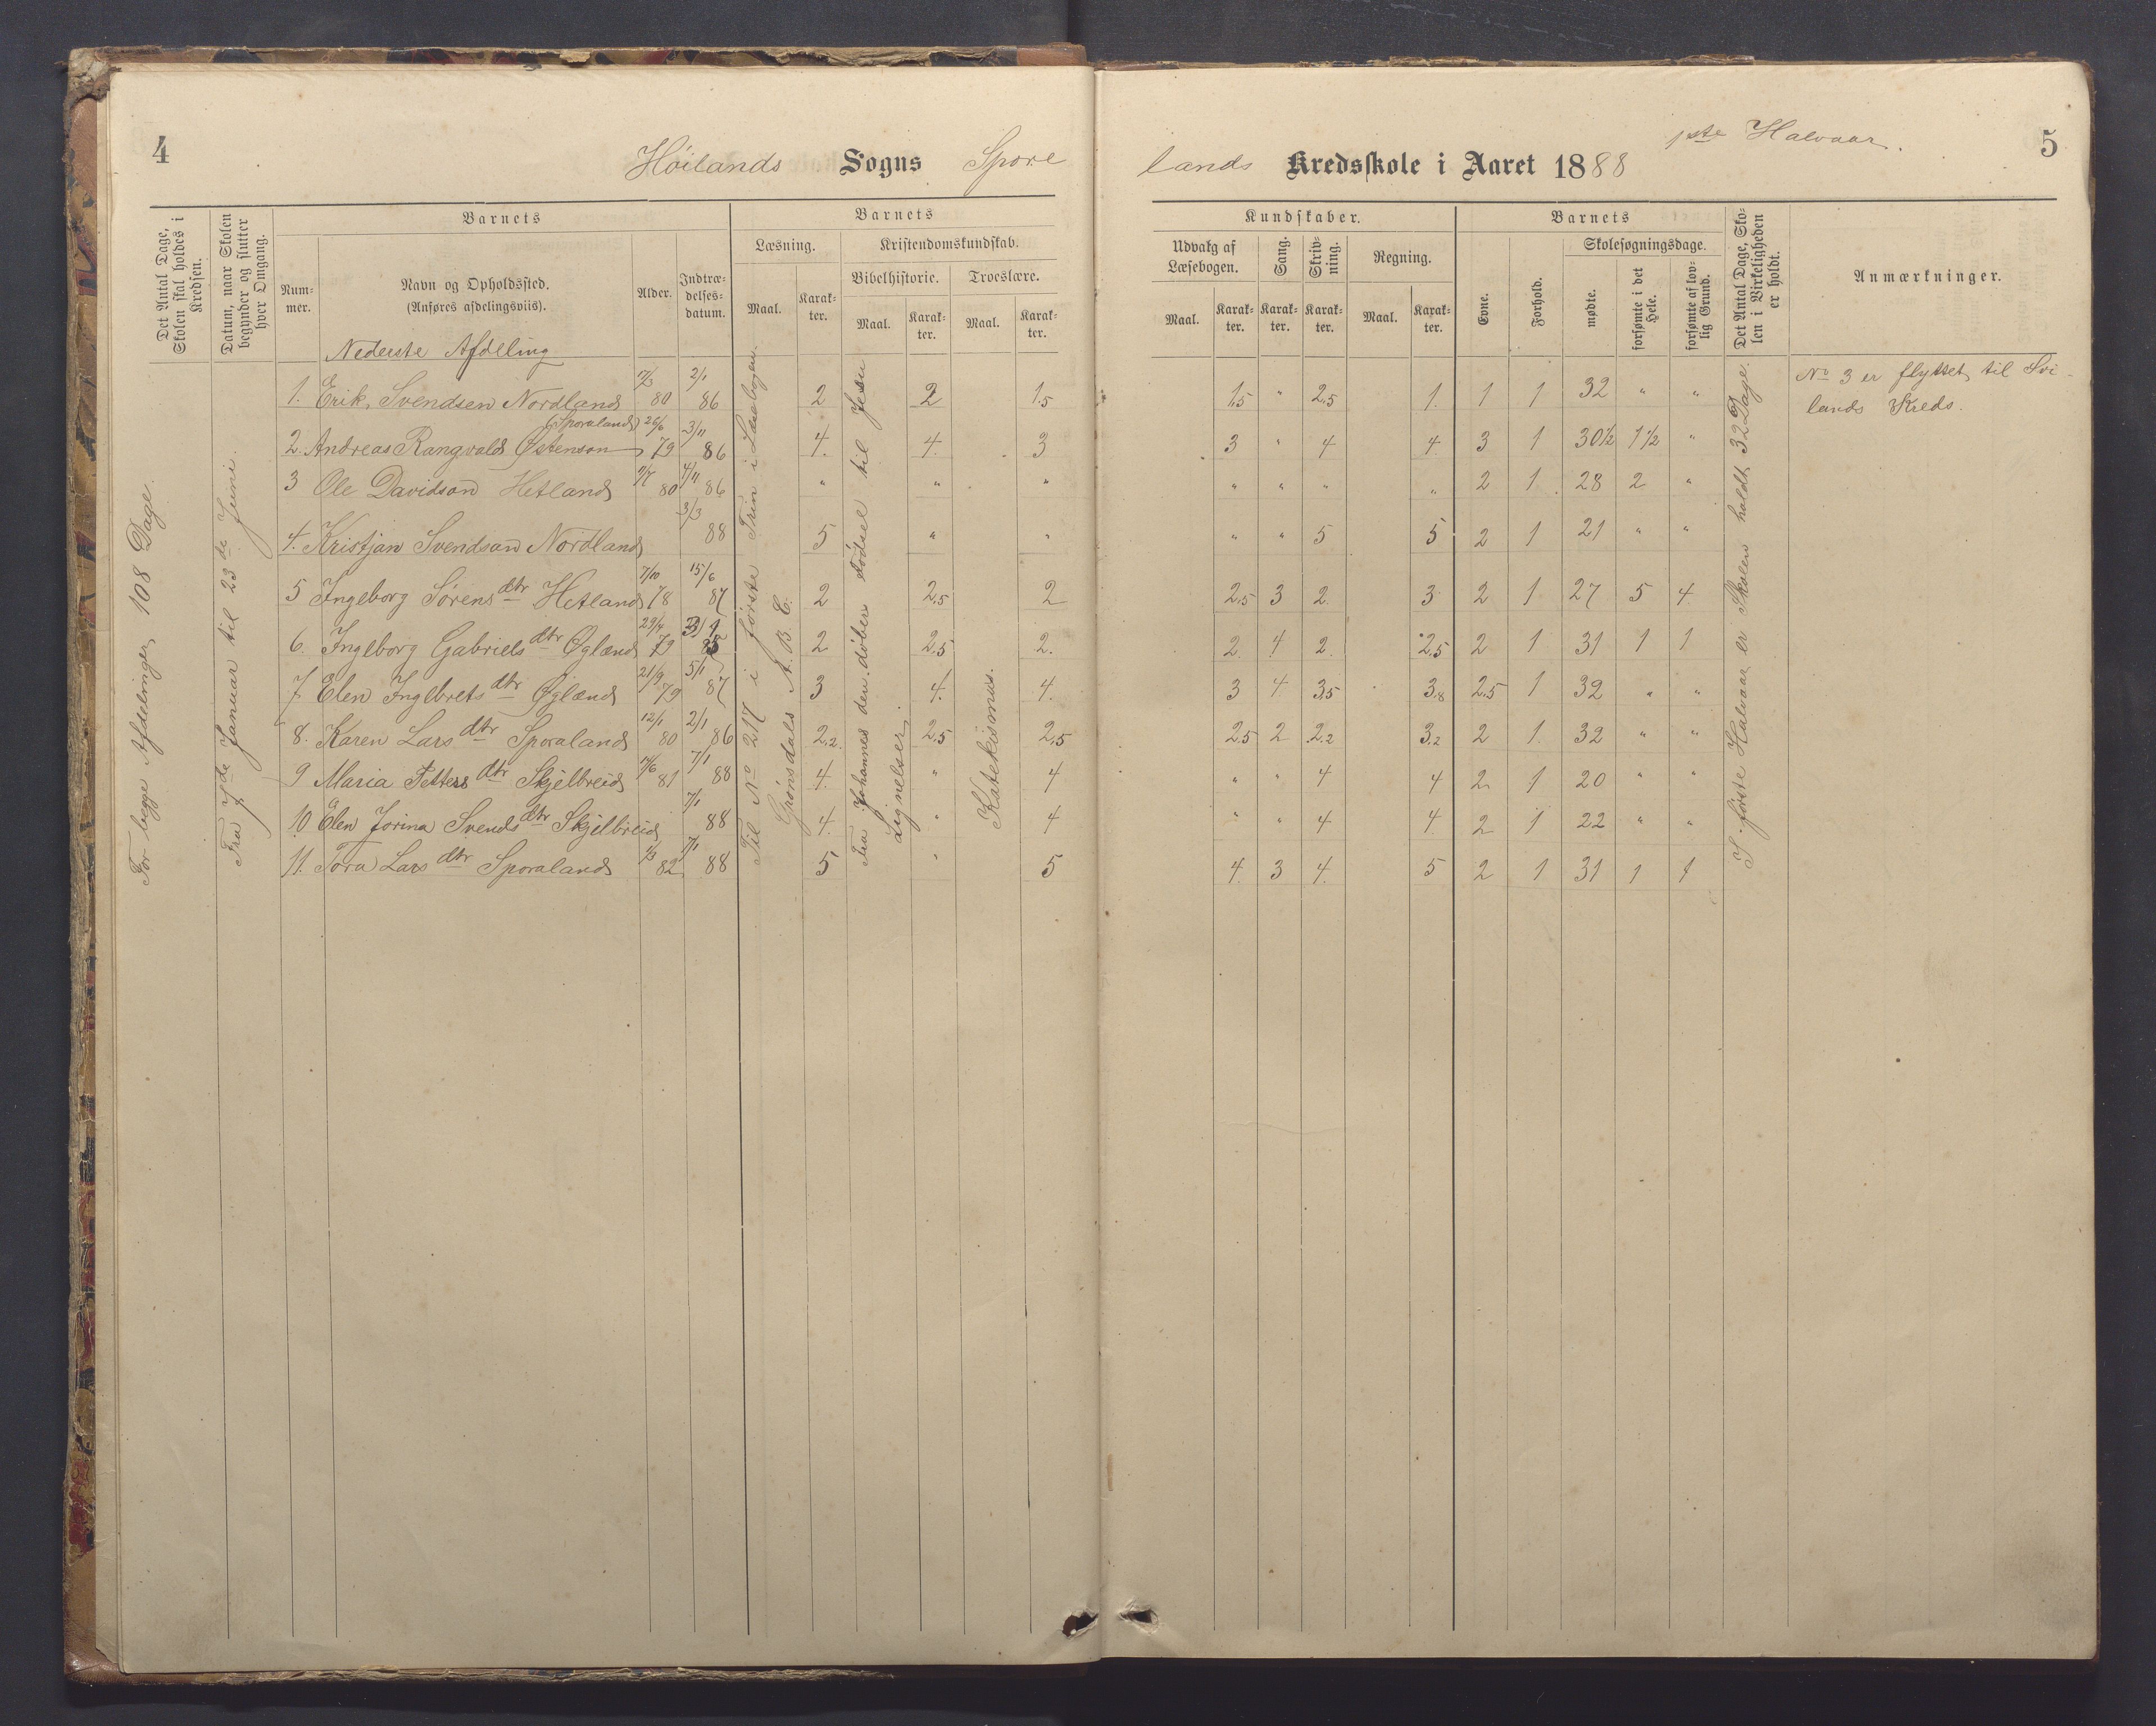 4
Höilands Sogns Spore
lands Kredsskole i Aaret 1888
1ste Halvaar.
5
Det Antal Dage, Skolen skal holdes i Kredsen.
Datum, naar Skolen begynder og slutter hver Omgang.
Barnets
Num- mer.
Navn og Opholdssted.
(Anføres afdelingsviis).
Alder.
Indtræ- delses- datum.
Barnets
Læsning.
Maal.
Karak- ter.
Kristendomskundskab.
Bibelhistorie.
Maal.
Karak- ter.
Troeslære.
Maal.
Karak- ter.
Kundskaber.
Udvalg af Læsebogen.
Maal.
Karak- ter.
Sang.
Karak- ter.
Skriv- ning.
Karak- ter.
Regning.
Maal.
Karak- ter.
Barnets
Evne.
Forhold.
Skolesøgningsdage.
mødte.
forsømte i det Hele.
forsømte af lov- lig Grund.
Det Antal Dage, Sko- len i Virkeligheden er holdt.
Anmærkninger.
For begge Afdelinger 108 Dage.
Fra 7de Januar til 23de Juni.
Til No 217 i første Trin i Læsebogen.
Grønsdals A. B. C.
Fra Johannes den døbers Fødsel til Jesu
Lignelser.
Katekismus.
I første Halvaar er Skolen holdt 32 Dage.
Nederste Afdeling
1. Erik Svendsen Nordland 7/3 80 2/1 86 2 2 1.5 1.5 " 2.5 1. 1 1 32 " " No 3 er flyttet til Svi-
lands Kreds.
(Sporaland)
2. Andreas Rangvald Østenson 26/6 79 3/11 86 4. 4. 3 3 " 4 4 3 1 30½ 1½ "
3 Ole Davidson Hetland 1/7 80 4/11 86 " " " " " " " 2 1 28 2 "
4. Kristjan Svendson Nordland 3/3 88 5 " " " " 5 5 2 1 21 " "
5 Ingeborg Sørensdtr Hetland 7/10 78 15/6 87 2 2.5 2 2.5 3 2 3 2 1 27 5 4
6. Ingeborg Gabrielsdtr Øgland 29/4 79 2 2.5 2. 2. 4 2 2.5 2 1 31 1 1
7. Elen Ingebretsdtr Øgland 21/9 79 5/1 87 3 4. 4. 3 4 3.5 3.8 2.5 1 32 " "
8. Karen Larsdtr Sporaland 12/1 80 2/1 86 2.2 2.5 2.5 2.5 2 2.2 3.2 2 1. 32 " "
9 Maria Pettersdtr Skjelbreid 7/6 81 7/1 88 4. " 4 " " 4 4 2 1 20 " "
10 Elen Jorina Svendsdtr Skjelbreid 7/1 88 4. " 4 " " 4 4. 2 1 22 " "
11. Tora Larsdtr Sporaland 1/3 82 7/1 88 5 " 5 4. 3 4. 5 2 1 31 1 1